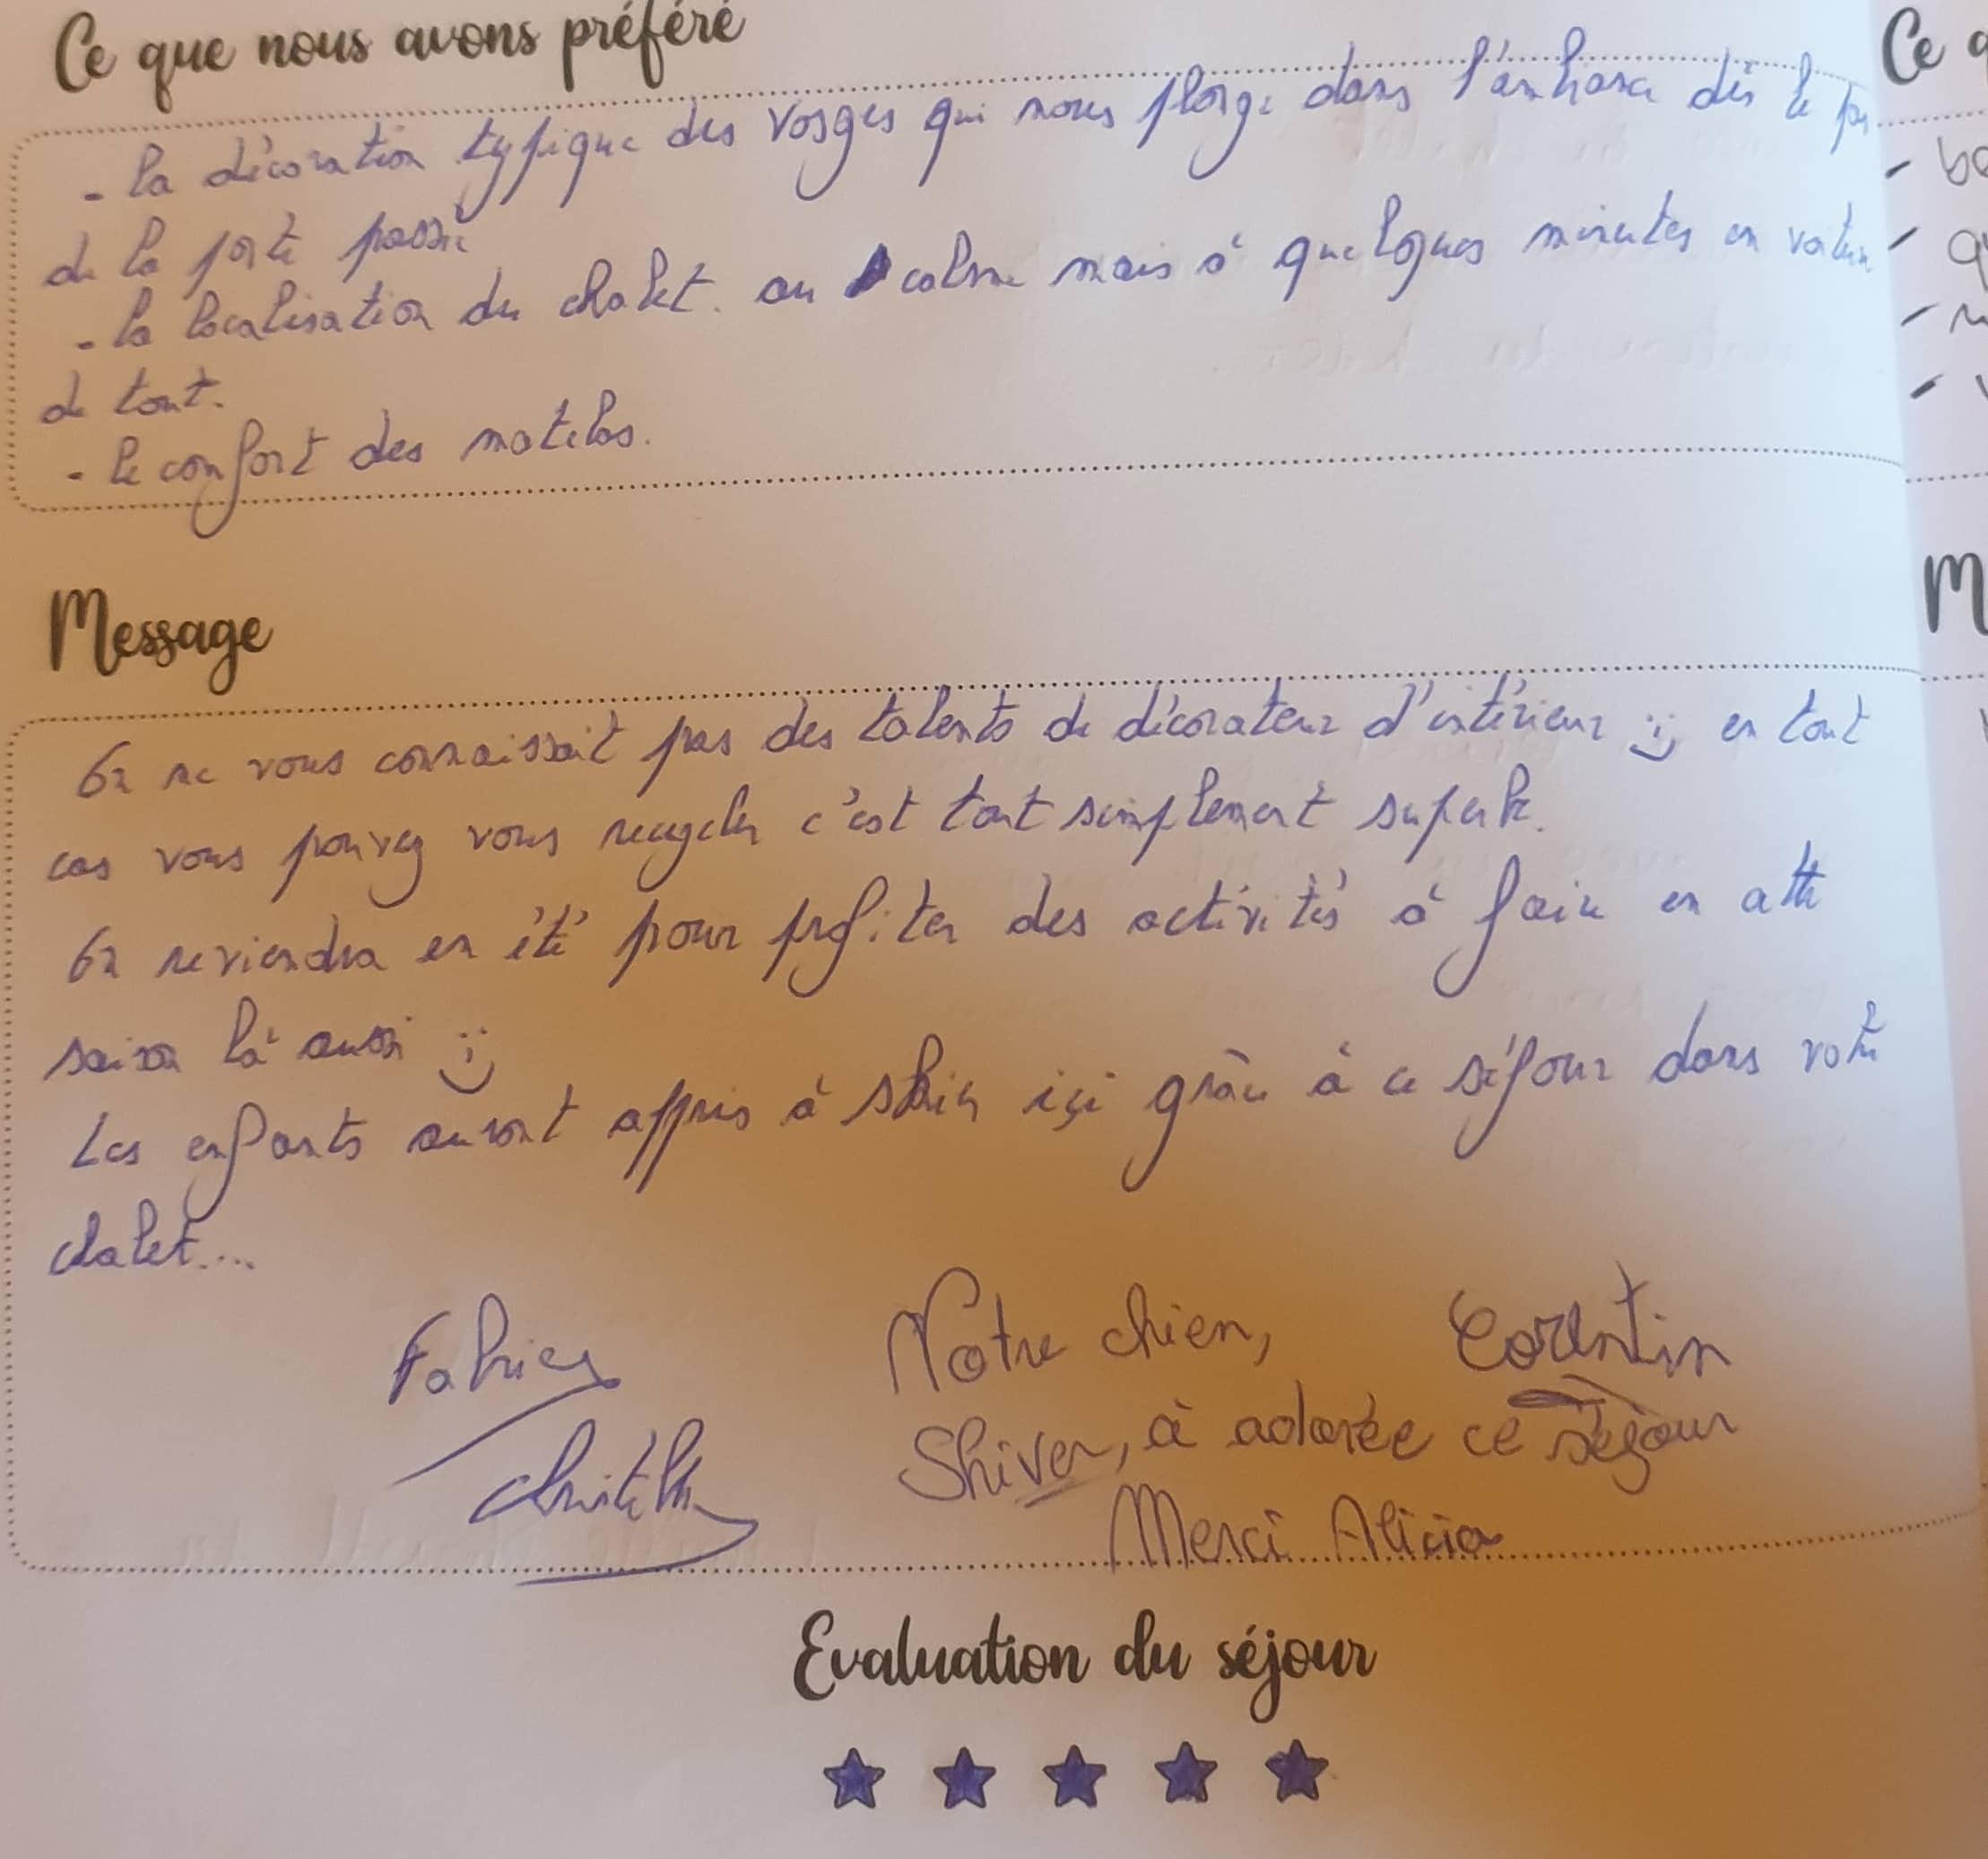 Ce que nous avons préféré
- la décoration typique des Vosges qui nous plonge dans l'ambiance dès le pas
de la porte passé
- la localisation du chalet. au calme mais à quelques minutes en voiture
de tout.
- le confort des matelas.
Message
On ne vous connaissait pas des talents de décorateur d'intérieur :) en tout
cas vous pouvez vous recycler c'est tout simplement superbe.
On reviendra en été pour profiter des activités à faire en cette
saison là aussi :)
Les enfants auront appris à skier içi grâce à ce séjour dans votre
chalet...
Fabrice
Christelle
Notre chien,
Shiver, à adorée ce séjour
Merci Alicia
Corentin
Evaluation du séjour
Ce
M